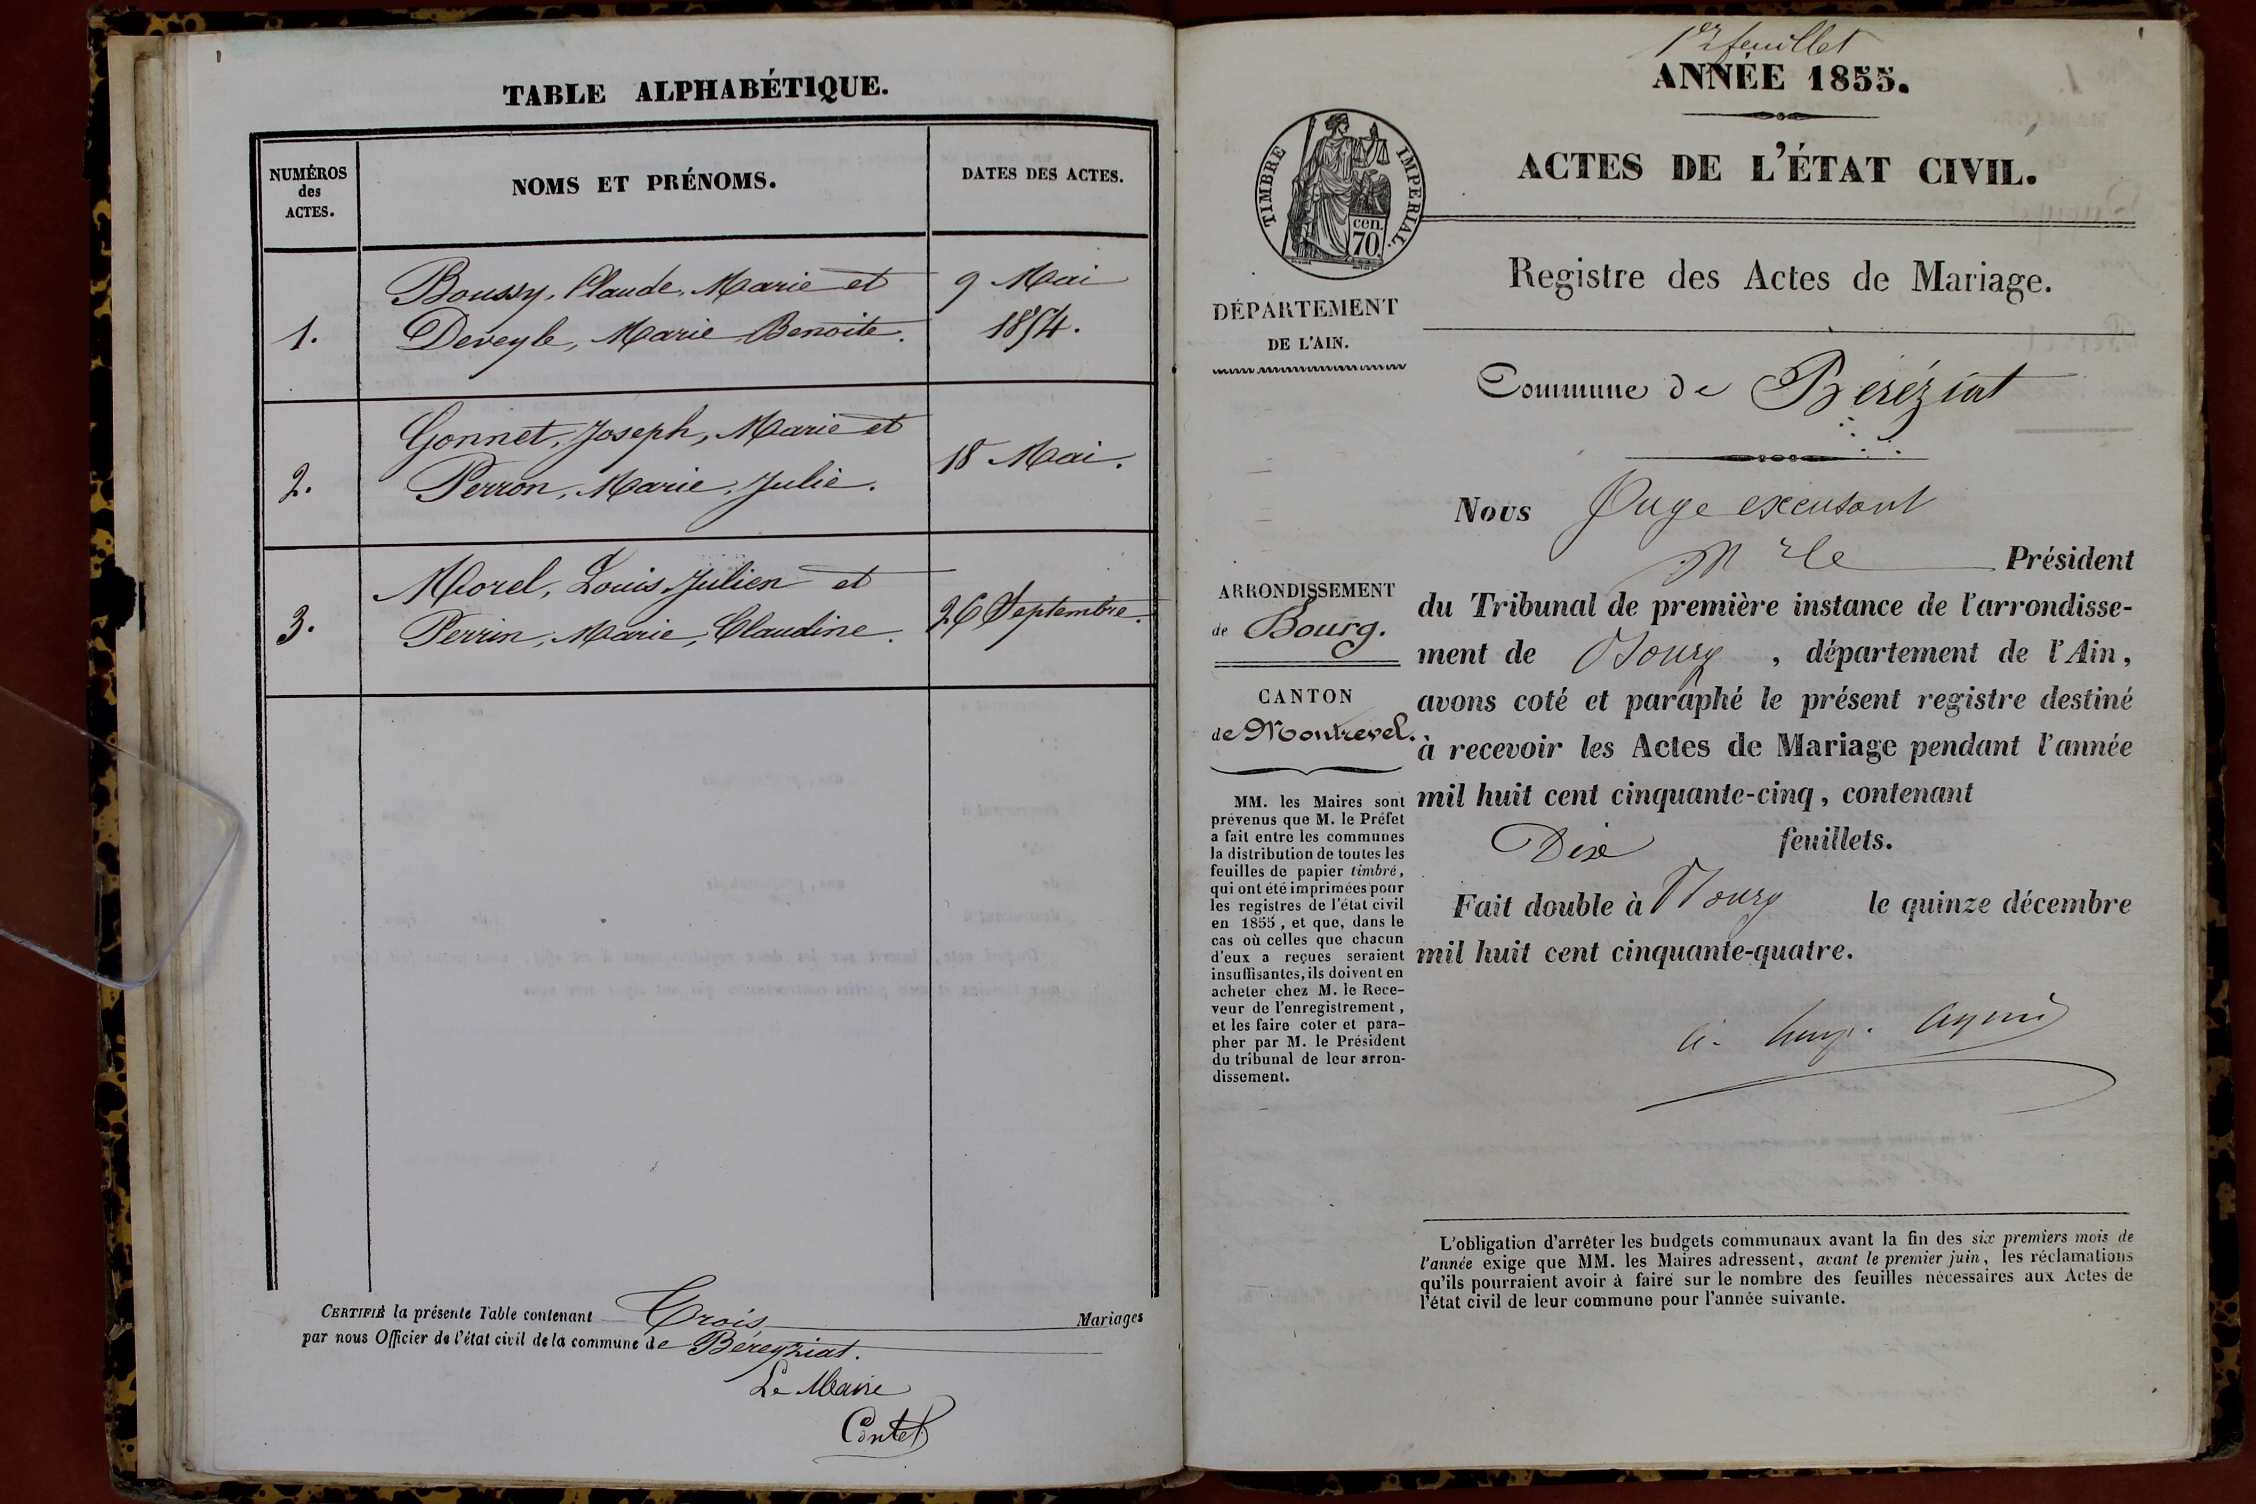 TABLE ALPHABÉTIQUE.
NUMÉROS
des
ACTES.
NOMS ET PRÉNOMS.
DATES DES ACTES.
1.
Boussy, Claude, Marie et
Deveyle, Marie Benoite.
9 Mai
1854.
2.
Gonnet, Joseph, Marie et
Perron, Marie, Julie.
18 Mai.
3.
Morel, Louis Julien et
Perrin, Marie, Claudine.
26 Septembre.
CERTIFIÉ la présente Table contenant Trois Mariages
par nous Officier de l'état civil de la commune de Béreyziat.
Le Maire
Contet
1er feuillet
ANNÉE 1855.
TIMBRE IMPERIAL.
cen.
70
ACTES DE L'ÉTAT CIVIL.
Registre des Actes de Mariage.
DÉPARTEMENT
DE L'AIN.
Commune de Béréziat
Nous Juge excusant
Mr le Président
du Tribunal de première instance de l'arrondisse-
ment de Bourg, département de l'Ain,
avons coté et paraphé le présent registre destiné
à recevoir les Actes de Mariage pendant l'année
mil huit cent cinquante-cinq, contenant
Dix feuillets.
Fait double à Bourg le quinze décembre
mil huit cent cinquante-quatre.
ARRONDISSEMENT
de Bourg.
CANTON
de Montrevel.
MM. les Maires sont
prévenus que M. le Préfet
a fait entre les communes
la distribution de toutes les
feuilles de papier timbré,
qui ont été imprimées pour
les registres de l'état civil
en 1855, et que, dans le
cas où celles que chacun
d'eux a reçues seraient
insuffisantes, ils doivent en
acheter chez M. le Rece-
veur de l'enregistrement,
et les faire coter et para-
pher par M. le Président
du tribunal de leur arron-
dissement.
L'obligation d'arrêter les budgets communaux avant la fin des six premiers mois de
l'année exige que MM. les Maires adressent, avant le premier juin, les réclamations
qu'ils pourraient avoir à faire sur le nombre des feuilles nécessaires aux Actes de
l'état civil de leur commune pour l'année suivante.